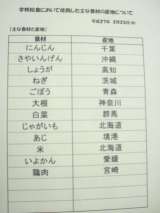 学校給食において使用した主な食材の産地について
平成27年 2月23日(月)
【主な食材の産地】
食材 産地
にんじん 千葉
きやいんげん 沖縄
しょうが 高知
ねぎ 茨城
ごぼう 青森
大根 神奈川
白菜 群馬
じゃがいも 北海道
あじ 境港
米 北海道
いよかん 愛媛
鶏肉 宮崎